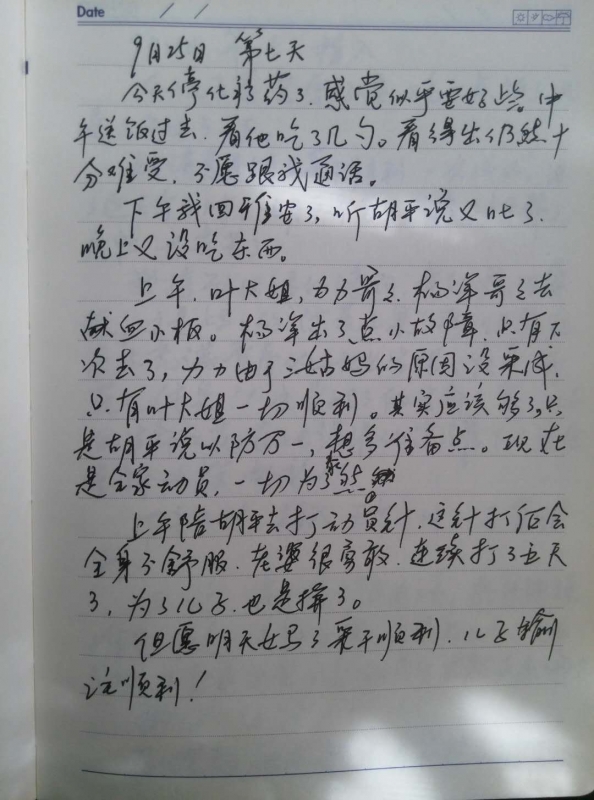 Date / /
9月25日 第七天
今天停化疗药了,感觉似乎要好些。中
午送饭过去,看他吃了几勺。看得出仍然十
分难受,不愿跟我通话。
下午我回雅安了,听胡平说又吐了.
晚上又没吃东西。
上午,叶大姐,力力哥哥,杨洋哥哥去
献血小板。杨洋出了点小故障,只有下
次去了,力力由于三姑妈的原因没采成,
只有叶大姐一切顺利。其实应该够了,只
是胡平说以防万一,想多准备点。现在
是全家动员,一切为了然
上午陪胡平去打动员针,这针打后会
全身不舒服,老婆很勇敢,连续打了五天
了,为了儿子,也是拼了。
但愿明天妈妈采干顺利,儿子输
注顺利!